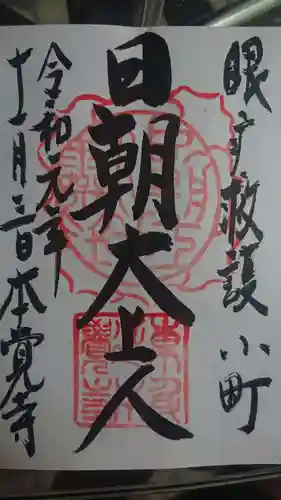 眼守救護 小町
日朝大上人
令和元年
十一月三日 本覺寺